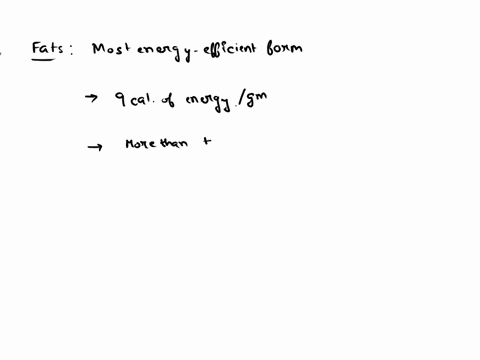 Fats: Most energy-efficient form
→ 9 cal. of energy/gm
→ More than t